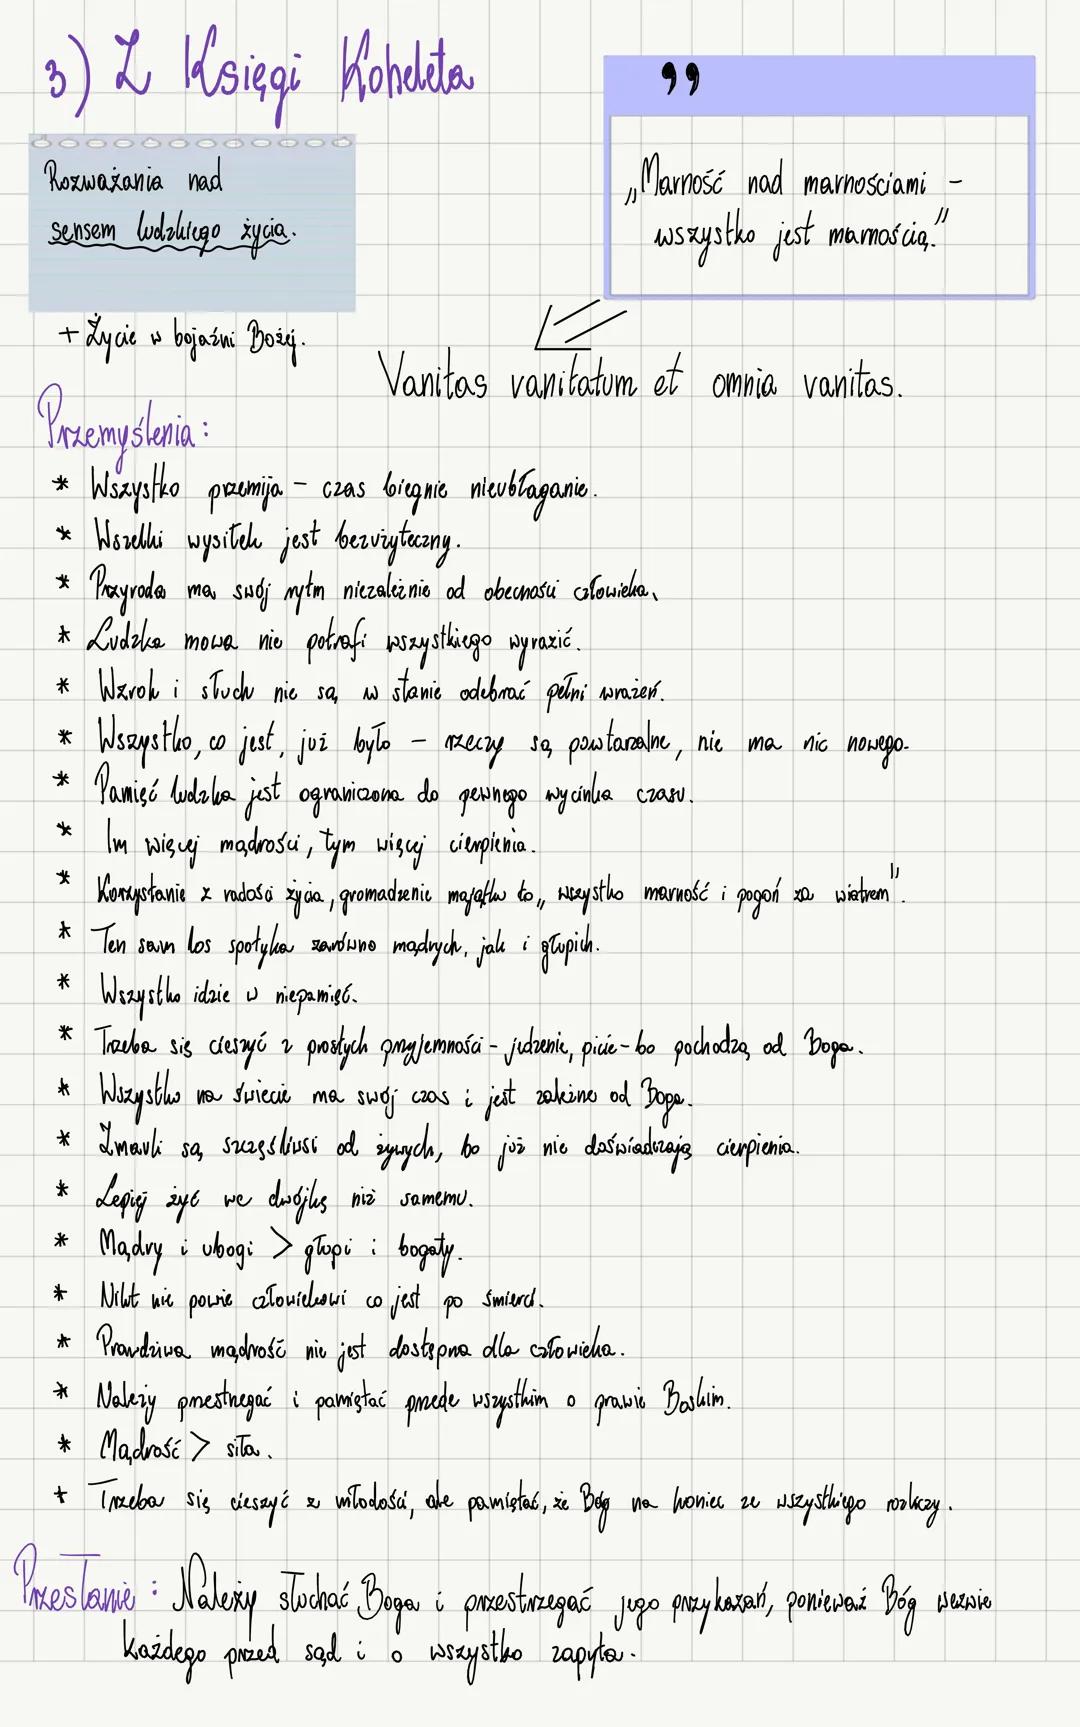 3) Z Księgi Koheleta
”
Rozważania nad
sensem ludzkiego życia.
„Marność nad marnościami –
wszystko jest marnością.”
+ Życie w bojaźni Bożej.
Vanitas vanitatum et omnia vanitas.
Przemyślenia:
* Wszystko przemija – czas biegnie nieubłaganie.
* Wszelki wysiłek jest bezużyteczny.
* Przyroda ma swój rytm niezależnie od obecności człowieka.
* Ludzka mowa nie potrafi wszystkiego wyrazić.
* Wzrok i słuch nie są w stanie odebrać pełni wrażeń.
* Wszystko, co jest, już było – rzeczy są powtarzalne, nie ma nic nowego.
* Pamięć ludzka jest ograniczona do pewnego wycinka czasu.
* Im więcej mądrości, tym więcej cierpienia.
* Korzystanie z radości życia, gromadzenie majątku to „wszystko marność i pogoń za wiatrem”.
* Ten sam los spotyka zarówno mądrych, jak i głupich.
* Wszystko idzie w niepamięć.
* Trzeba się cieszyć z prostych przyjemności – jedzenie, picie – bo pochodzą od Boga.
* Wszystko na świecie ma swój czas i jest zależne od Boga.
* Zmarli są szczęśliwsi od żywych, bo już nie doświadczają cierpienia.
* Lepiej żyć we dwójkę niż samemu.
* Mądry i ubogi > głupi i bogaty.
* Nikt nie powie człowiekowi co jest po śmierci.
* Prawdziwa mądrość nie jest dostępna dla człowieka.
* Należy przestrzegać i pamiętać przede wszystkim o prawie Boskim.
* Mądrość > siła.
* Trzeba się cieszyć z młodości, ale pamiętać, że Bóg na koniec ze wszystkiego rozliczy.
Przesłanie: Należy słuchać Boga i przestrzegać jego przykazań, ponieważ Bóg wezwie
każdego przed sąd i o wszystko zapyta.